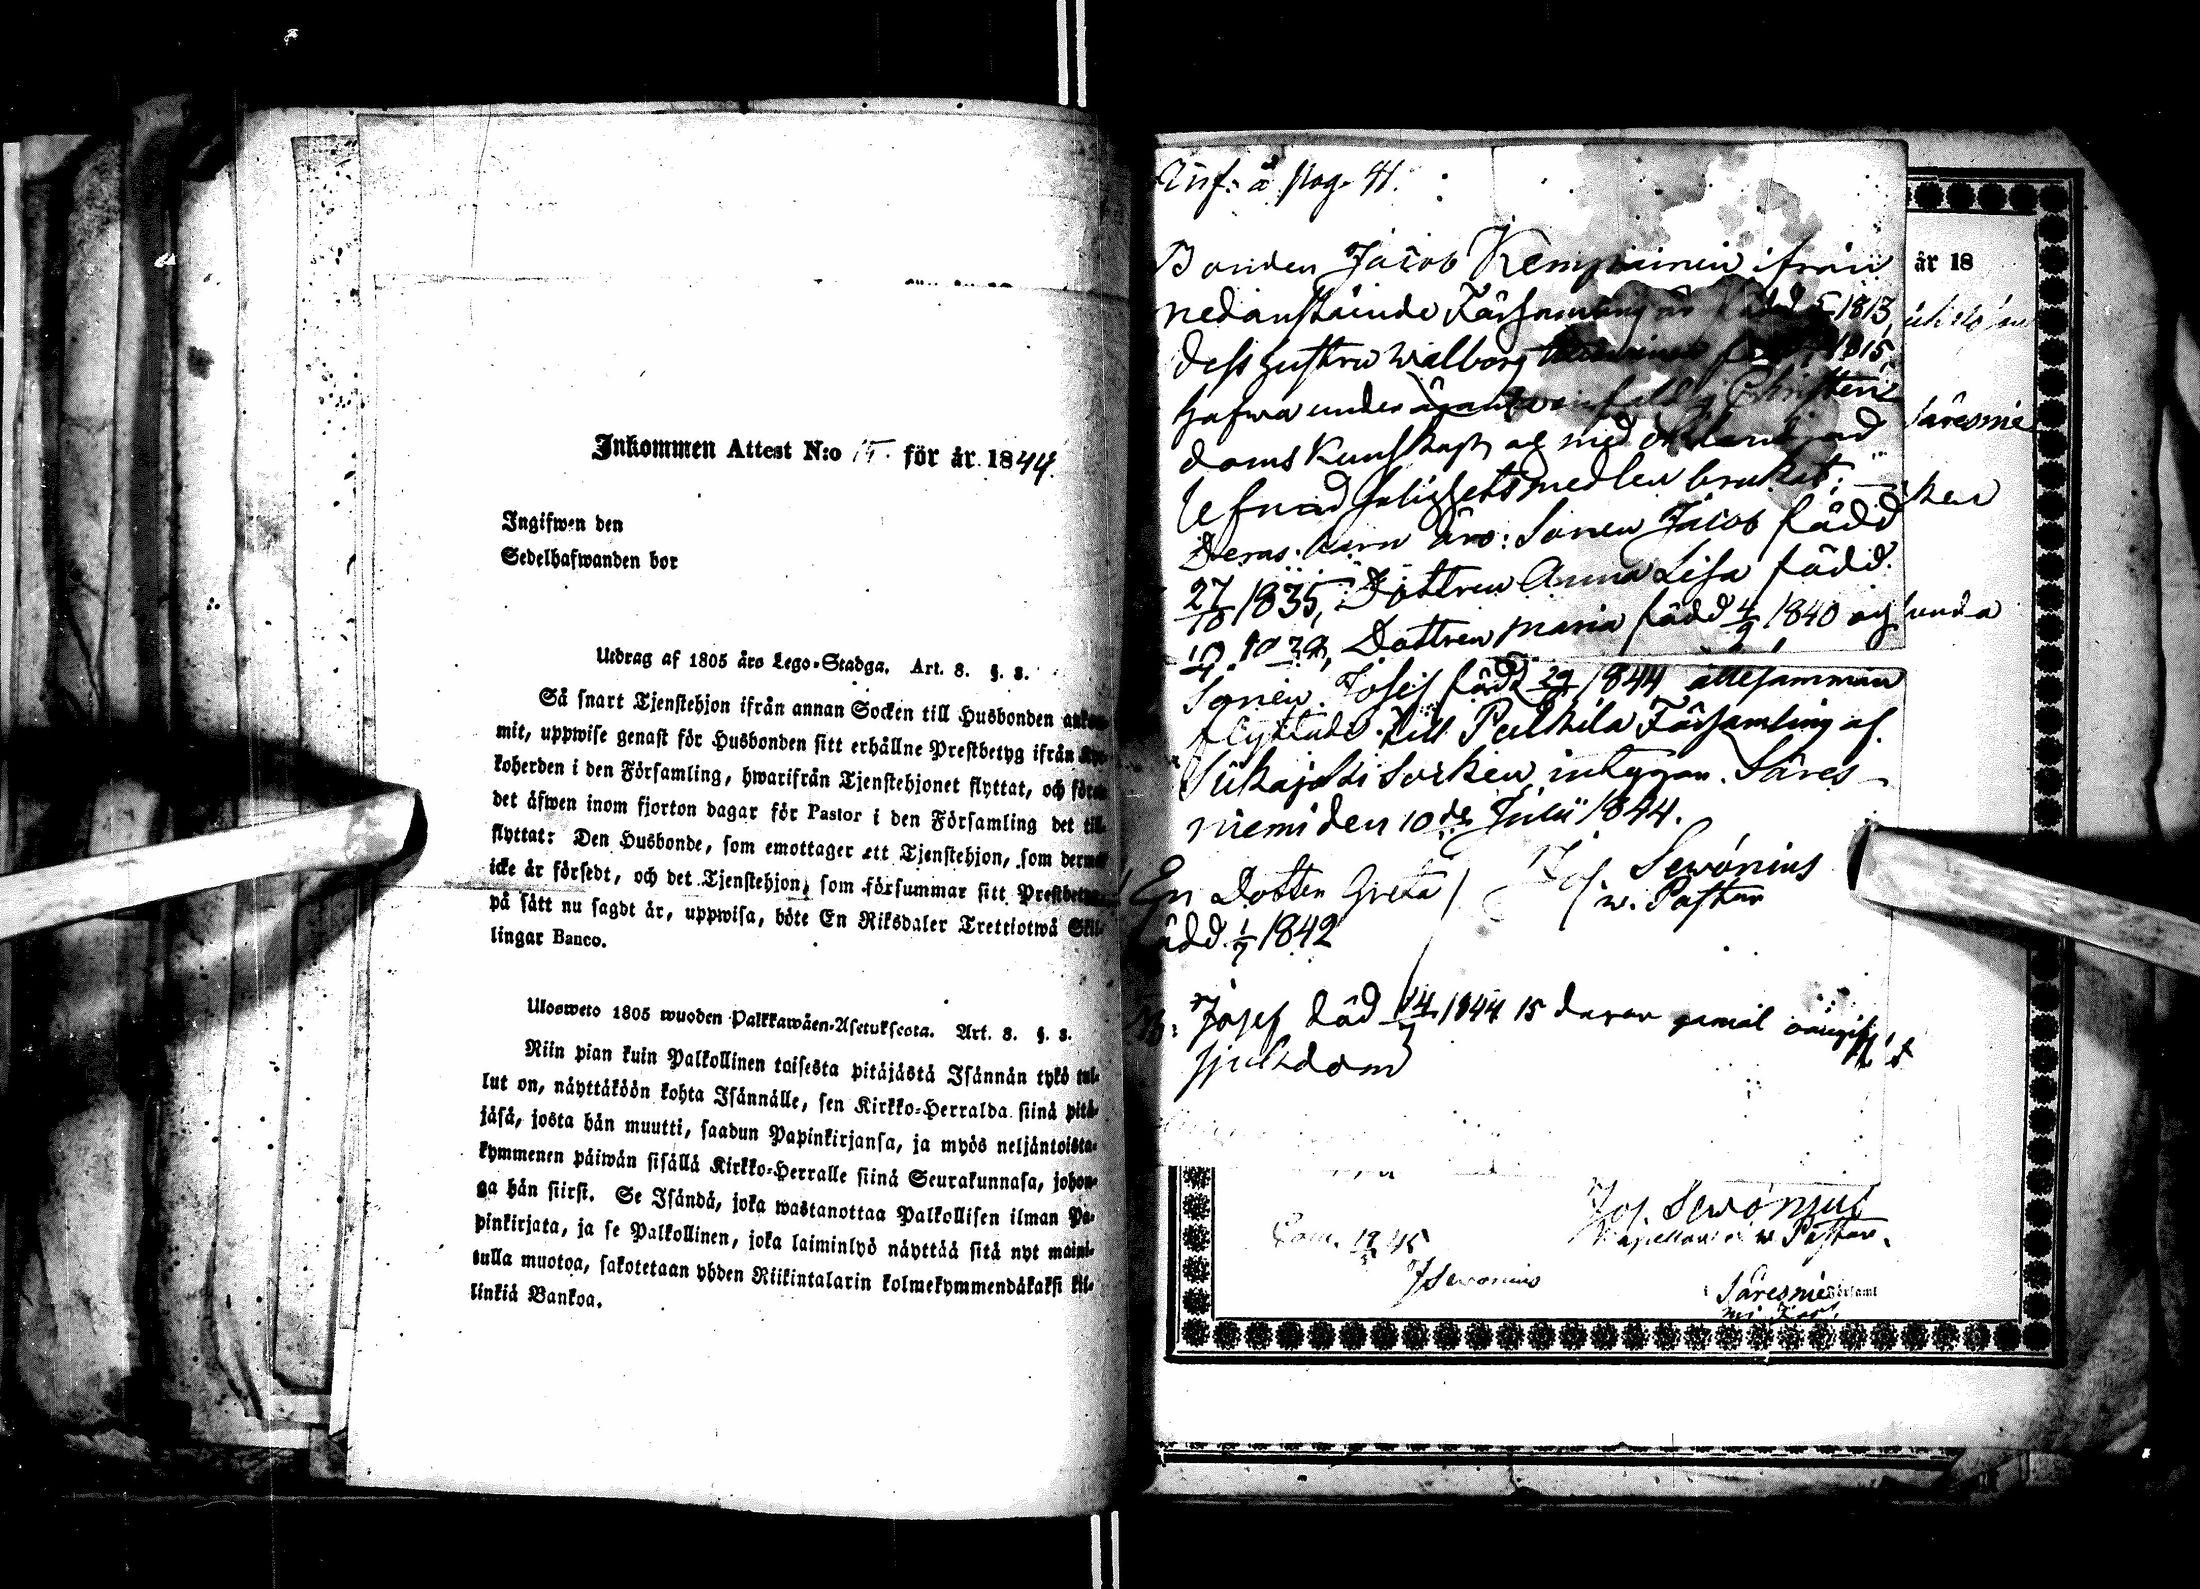 Inkommen Attest N:o 15. för år 1844.
Ingifwen den
Sedelhafwanden bor
Utdrag af 1805 års Lego-Stadga. Art. 8. §. 3.
Så snart Tjenstehjon ifrån annan Socken till Husbonden
mit, uppwise genast för Husbonden sitt erhållne Prestbetyg ifrån
koherden i den Församling, hwarifrån Tjenstehjonet flyttat, och
det äfwen inom fjorton dagar för Pastor i den Församling det till-
flyttat: Den Husbonde, som emottager ett Tjenstehjon, som
icke är försedt, och det Tjenstehjon, som försummar sitt
på sätt nu sagdt är, uppwisa, böte En Riksdaler Trettiotwå Skil-
lingar Banco.
Ulosweto 1805 wuoden Palkkawäen-Asetuksesta. Art. 8. §. 3.
Niin pian kuin Palkollinen toisesta pitäjästä Isännän tykö tul-
lut on, näyttäköön kohta Isännälle, sen Kirkko-Herralda siinä pitä-
jäsä, josta hän muutti, saadun Papinkirjansa, ja myös neljäntoista-
kymmenen päiwän sisällä Kirkko-Herralle siinä Seurakunnasa, johon-
ga hän siirst. Se Isändä, joka wastanottaa Palkollisen ilman Pa-
pinkirjata, ja se Palkollinen, joka laiminlyö näyttää sitä nyt maini-
tulla muotoa, sakotetaan yhden Riikintalarin kolmekymmendäkaksi kil-
linkiä Bankoa.
Inf: å pag. 41.
Bonden Jacob Kemppainen ifrån
nedanstående Församling är född 1813,
dess hustru Walborg 1815
hafwa under Christen
doms kunskap och med oklandrad
lefnad salighetsmedlen brukat.
Deras barn äro: Sonen Jacob född
27/10 1835, Dottren Anna Lisa född
Dottren Maria född 4/9 1840 och
Sonen Josef född 29 1844 allesamman
flyttade till Pulkkila Församling af
Siikajoki Socken, intygar. Säres-
niemi den 10de Julii 1844.
Jos. Sewónius
w. Pastor
En Dotter Greta
född 1/7 1842
Josef död 14/7 1844 15 dagar gamal
sjukdom
år 18
Säresnie
ken
Jos. Sewónius
w. Pastor.
45
JSewonius
Säresnie